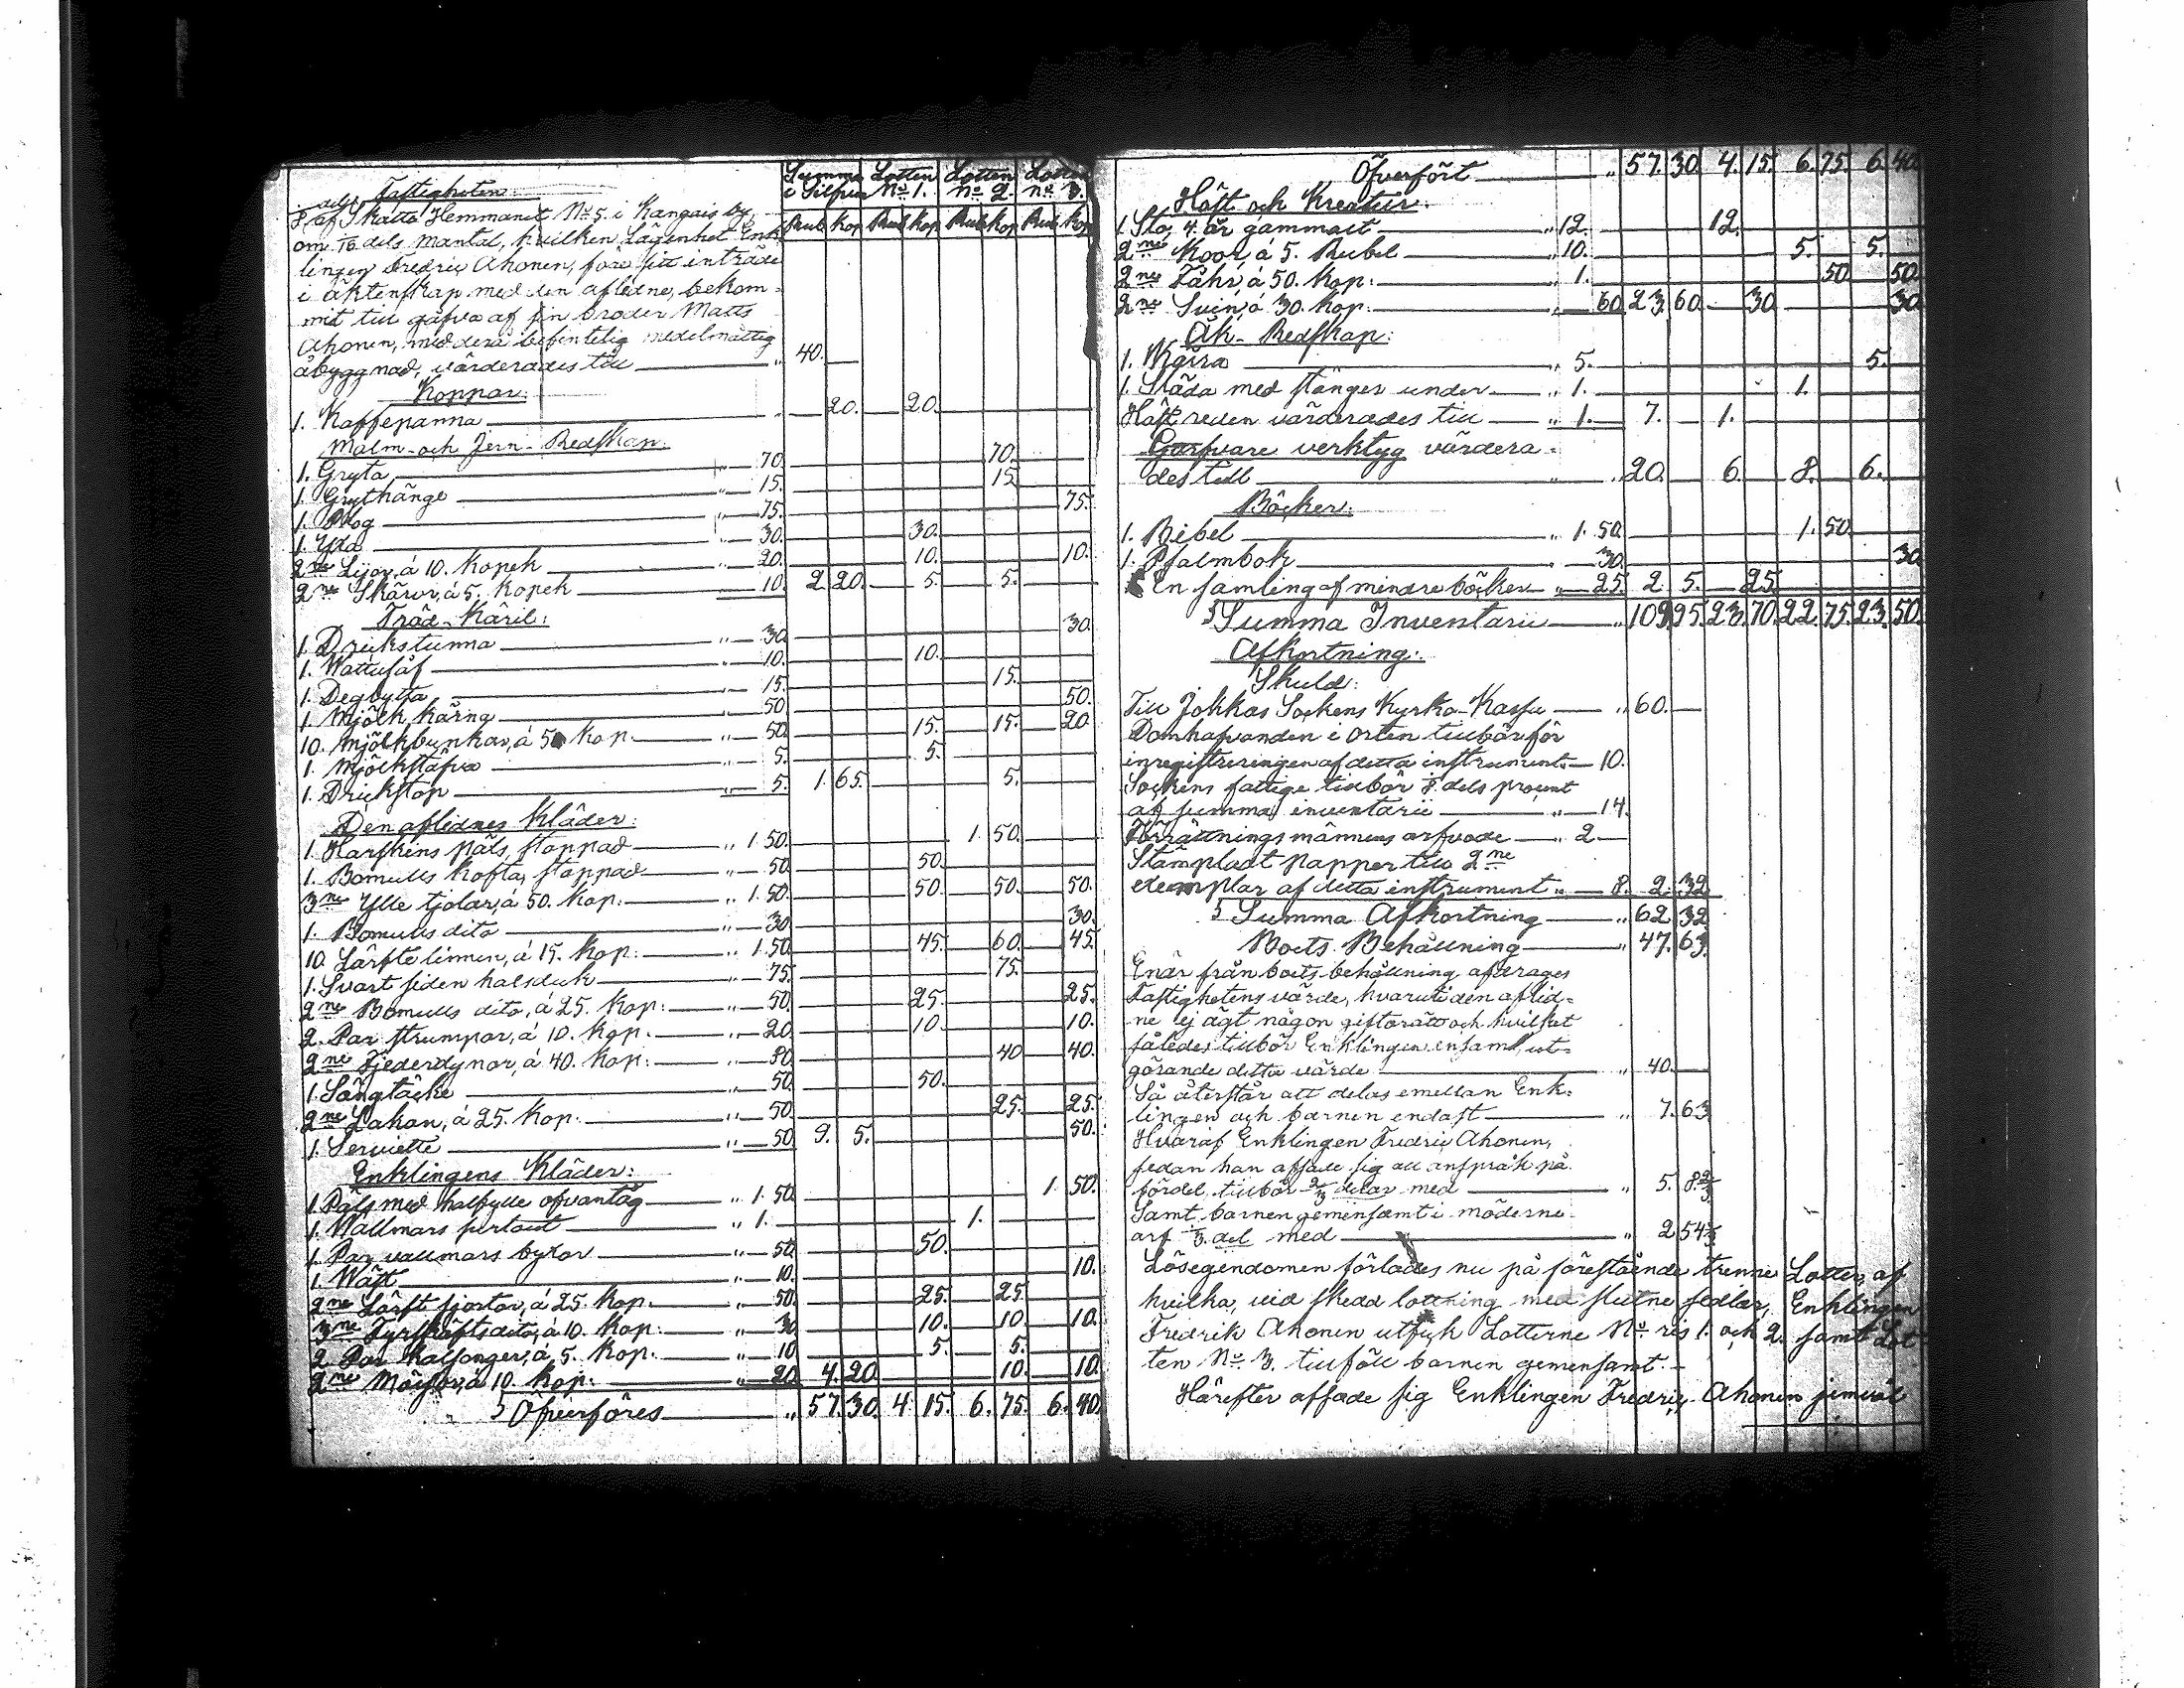 Summa i Silfver Lotten No 1. Lotten No 2. Lotten No 3.
Rub Kop Rub Kop Rub Kop Rub Kop
Fastigheten:
dels af Skatte Hemmanet No 5. i Kangais by,
om dels Mantal, hvilken Lägenhet Enk-
lingen Fredric Ahonen, före sitt inträde
i äktenskap med den aflidne, bekom-
mit till gåfva af sin broder Matts
Ahonen, med derå befintelig medelmåttig
åbyggnad, värderades till „ 40. —
Koppar:
1. Kaffepanna „ — 20. — 20.
Malm- och Jern-Redskap:
1. Gryta „ — 70. 70.
1. Grythänge „ — 15. 15.
1. Plog „ — 75. 75.
1. Yxa „ — 30. 30.
2ne Lijor, á 10. Kopek „ — 20. 10. 10.
2ne Skäror, á 5. Kopek „ — 10. 2. 20. — 5. — 5.
Träd-Käril:
1. Drickstunna „ — 30. 30.
1. Wattusåf „ — 10. 10.
1. Degbytta „ — 15. 15.
1. Mjölk kärna „ — 50. 50.
10. Mjölkbunkar, á 5 Kop. „ — 50. 15. — 15. — 20
1. Mjölkstäfva „ — 5. 5.
1. Drickstop „ — 5. 1. 65. 5.
Den aflidnes Kläder:
1. Harskins päls, stoppad „ 1. 50. 1. 50.
1. Bomulls kofta, stoppad „ — 50. 50.
3ne Ylle tjolar, á 50. Kop. „ 1. 50. 50. — 50. — 50.
1. Bomulls dito „ — 30 30.
10. Lärfts linnen, á 15. Kop: „ 1. 50 45. — 60. — 45.
1. Svart siden halsduk „ — 75. 75.
2ne Bomulls dito, á 25. Kop: „ — 50. 25. 25.
2. Par strumpor, á 10. Kop. „ — 20. 10. 10.
2ne Fjederdynor, á 40. Kop: „ — 80. 40 — 40.
1. Sängtäcke „ — 50. 50.
2ne Lakan, á 25. Kop: „ — 50. 25. — 25.
1. Serviette „ — 50. 9. 5. 50.
Enklingens Kläder:
1. Päls med halfylle ofvantåg „ 1. 50. 1. 50.
1. Wallmars „ 1. — 1. —
1. Par vallmars byxor „ — 50. 50.
1. Wäst „ — 10. 10.
2ne Lärft sjortor, á 25. Kop. „ — 50. 25. — 25.
3ne dito, á 10. Kop: „ — 30 10. — 10. — 10.
2. Par Kalsonger, á 5. Kop. „ — 10 5. — 5.
2ne Mössor, á 10. Kop: „ — 20 4. 20. 10. — 10.
S Öfverföres „ 57. 30. 4. 15. 6. 75. 6. 40.
Öfverfört „ 57. 30. 4. 15. 6. 75. 6. 40
Häst och Kreatur:
1. Sto, 4. år gammalt „ 12. 12.
2ne Koor, á 5. Rubel „ 10. 5. 5.
2ne Fåhr, á 50. Kop: „ 1. 50 50.
2ne Svin, á 30. Kop: „ — 60. 23. 60. — 30 — 30
Åk-Redskap:
1. Kärra „ 5. 5.
1. Släda med stänger under „ 1. 1.
Häst reden värderades till „ 1. 7. — 1.
Garfvare verktyg värdera-
des till „ 20. — 6. — 8. — 6.
Böcker:
1. Bibel „ 1. 50. 1. 50.
1. Psalmbok „ — 30. 30
En samling af mindre böcker „ — 25. 2. 5. — 25.
S Summa Inventarii „ 109. 95. 23. 70. 22. 75. 23. 50.
Afkortning:
Skuld:
Till Jokkas Sockens Kyrko-Kassa „ 60. —
Domhafvanden i Orten tillbör för
inregistreringen af detta instrument „ — 10.
Sockens fattige tillbör dels procent
af summa inventarii „ — 14.
Förrättningsmännens arfvode „ 2. —
Stämpladt papper till 2ne
exemplar af detta instrument „ — 8. 2. 32
S Summa Afkortning „ 62. 32
Boets Behållning „ 47. 63.
Enär från boets behållning afdrages
Fastighetens värde, hvaruti den aflid-
ne ej ägt någon giftorätt och hvilket
således tillbör Enklingen ensamt, ut-
görande detta värde „ 40. —
Så återstår att delas emellan Enk-
lingen och barnen endast „ 7. 63
Hvaraf Enklingen Fredric Ahonen,
sedan han afsade sig all anspråk på
fördel, tillbör 2/3 delar med „ 5. 8 2/3
Samt barnen gemensamt i möderne
arf 1/3 del med „ 2 54 1/3
Lösegendomen förlades nu på förestående trenne Lotter, af
hvilka, vid skedd lottning med slutne sedlar, Enklingen
Fredrik Ahonen utfick Lotterne No ris 1. och 2. samt Lot-
ten No 3. tillföll barnen gemensamt. —
Härefter afsade sig Enklingen Fredric Ahonen jemväl